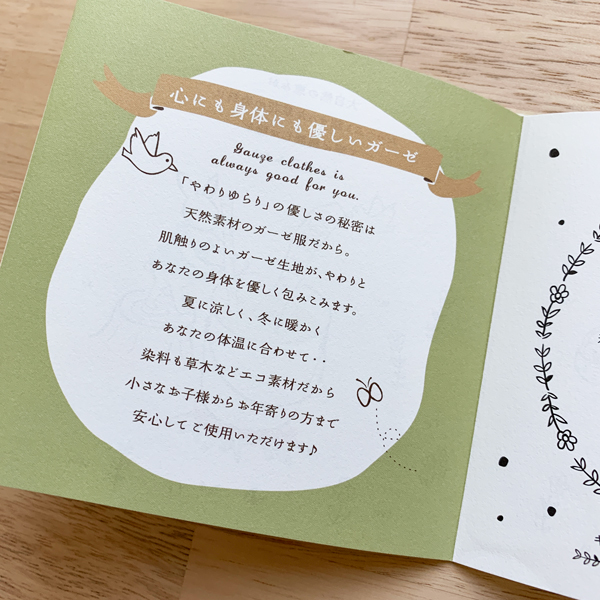 心にも身体にも優しいガーゼ
Gauze clothes is
always good for you.
「やわりゆらり」の優しさの秘密は
天然素材のガーゼ服だから。
肌触りのよいガーゼ生地が、やわりと
あなたの身体を優しく包みこみます。
夏に涼しく、冬に暖かく
あなたの体温に合わせて・・
染料も草木などエコ素材だから
小さなお子様からお年寄りの方まで
安心してご使用いただけます♪